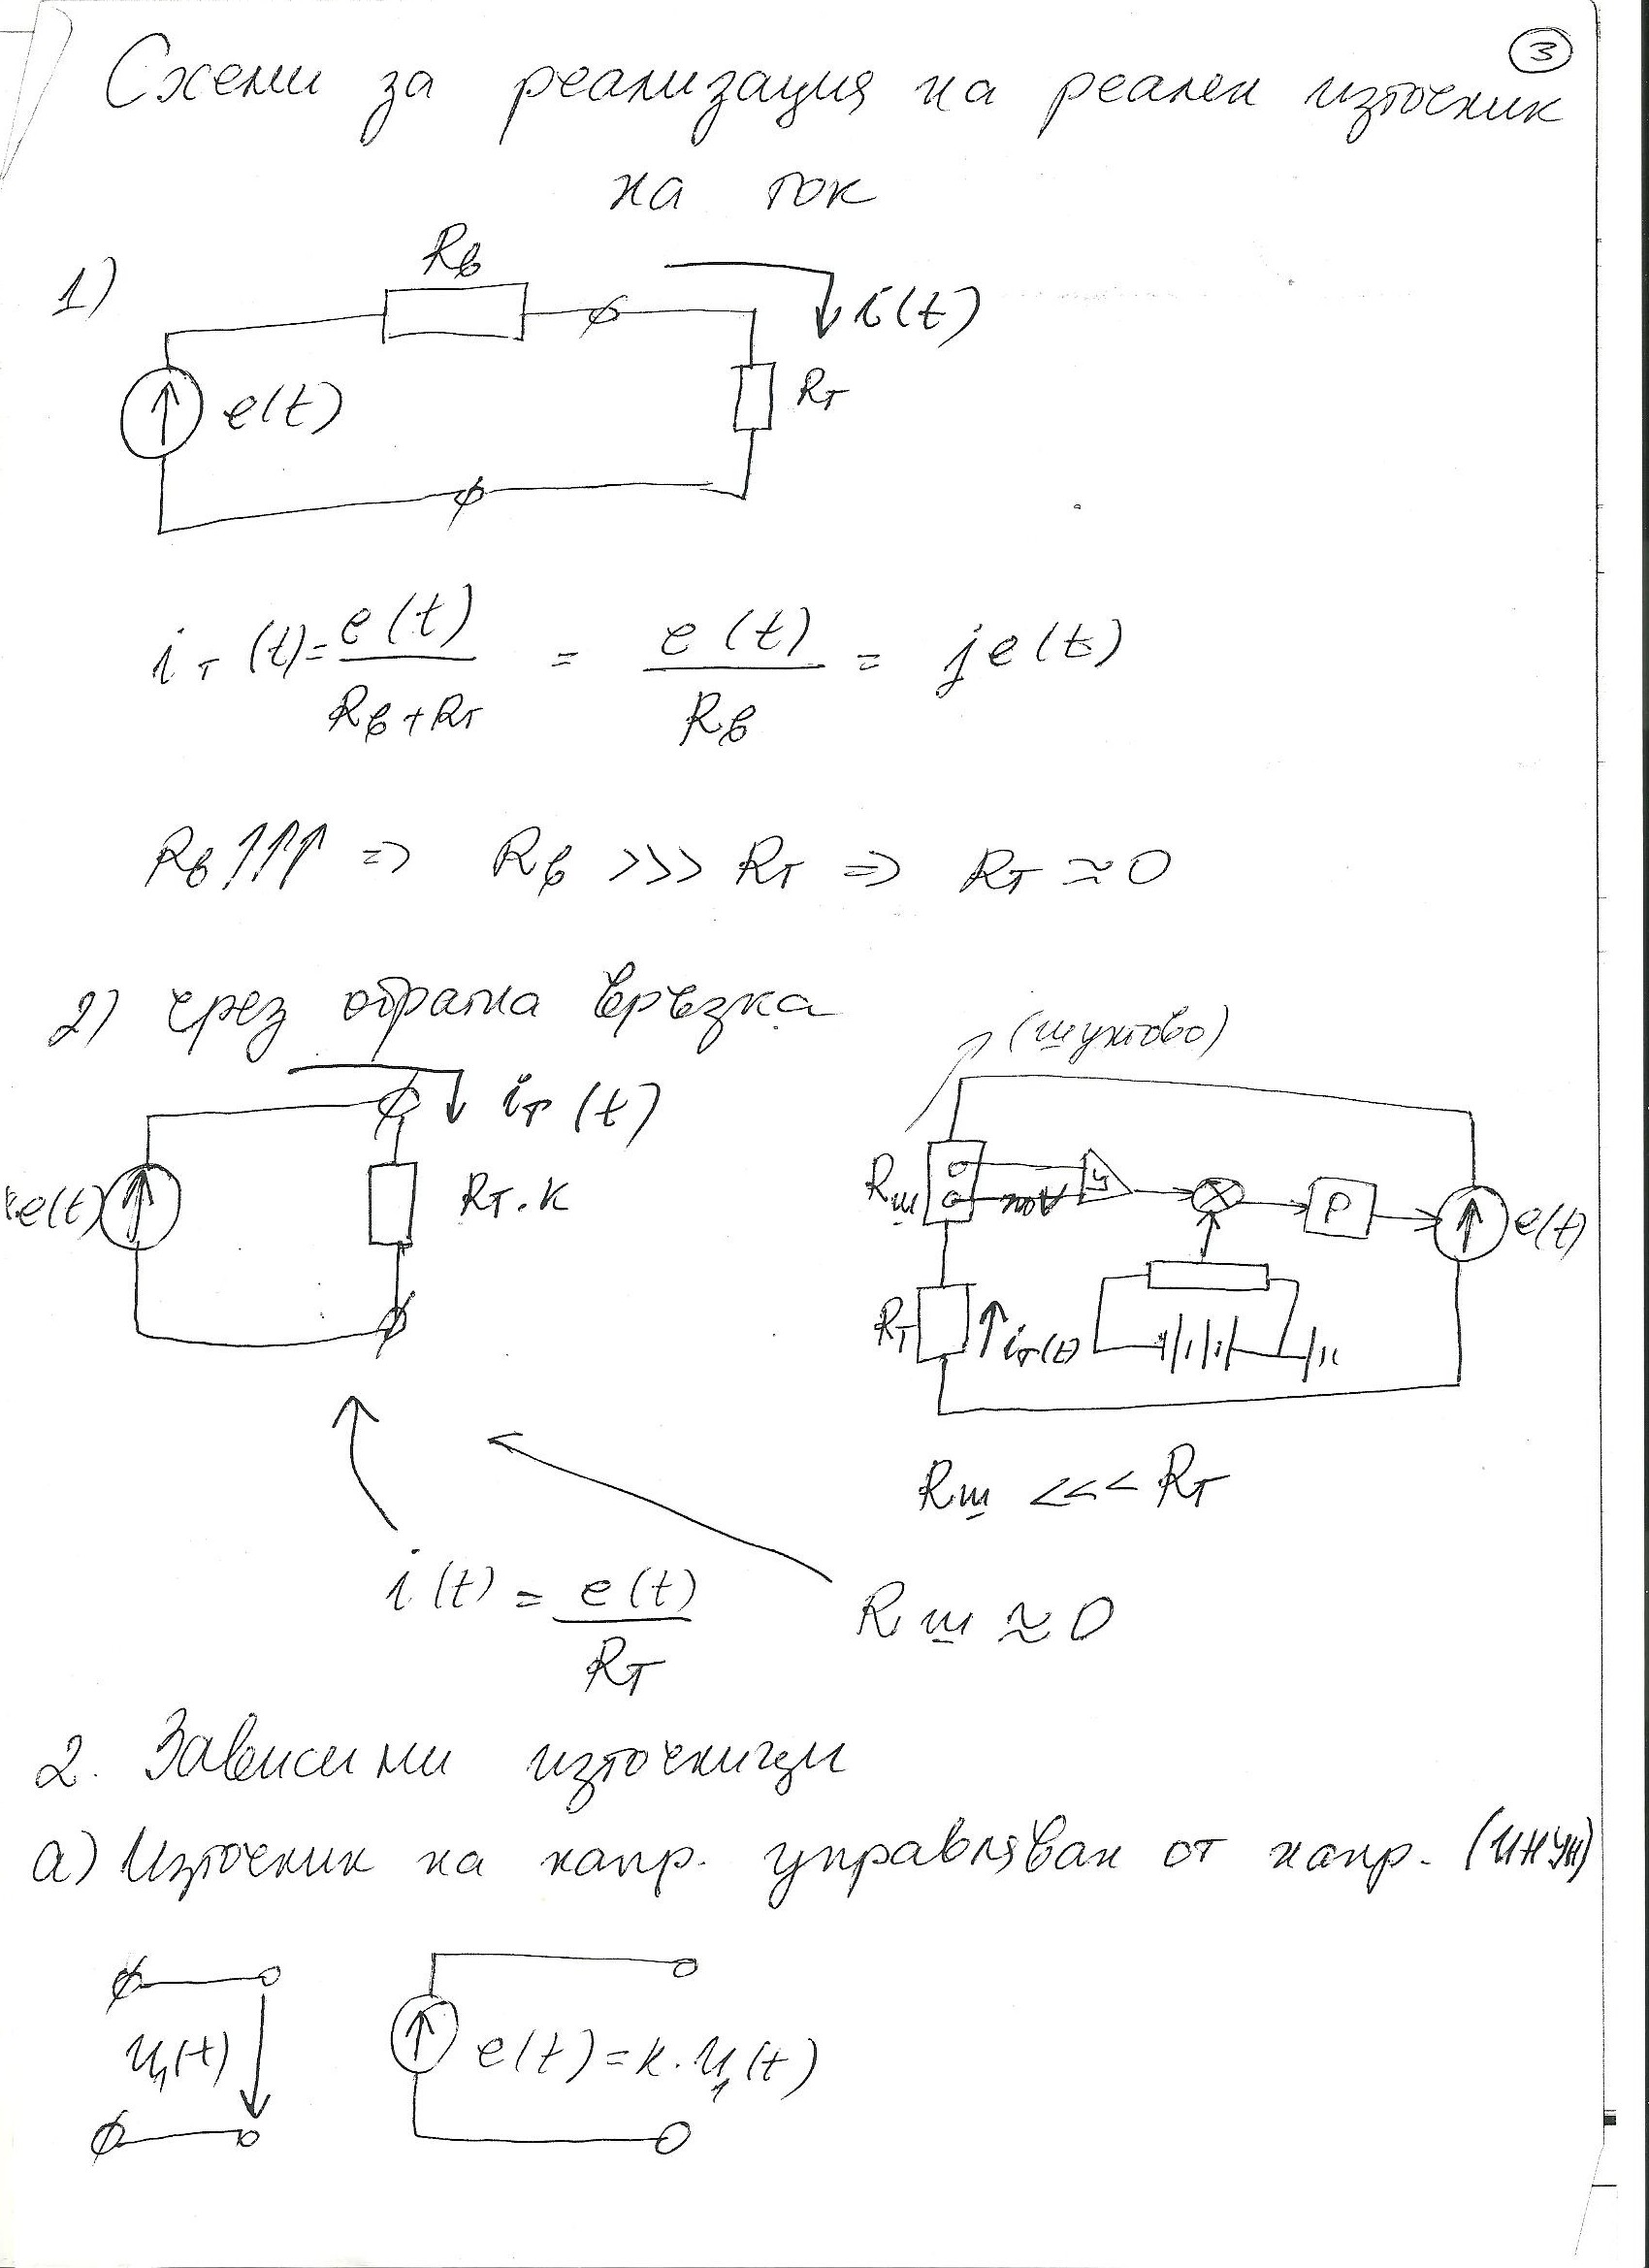 3
Схеми за реализация на реален източник
на ток
1)
Rв
i(t)
e(t)
Rт
iт(t) = e(t) / Rв+Rт = e(t) / Rв = je(t)
Rв↑↑↑ => Rв >>> Rт => Rт ≃ 0
2) чрез обратна връзка
(шунтово)
iт(t)
e(t)
Rт.к
Rш
У
P
e(t)
Rт
iт(t)
Rш <<< Rт
i(t) = e(t) / Rт
Rш ≈ 0
2. Зависими източници
а) Източник на напр. управляван от напр. (ИНУН)
u₁(t)
e(t) = k.u₁(t)